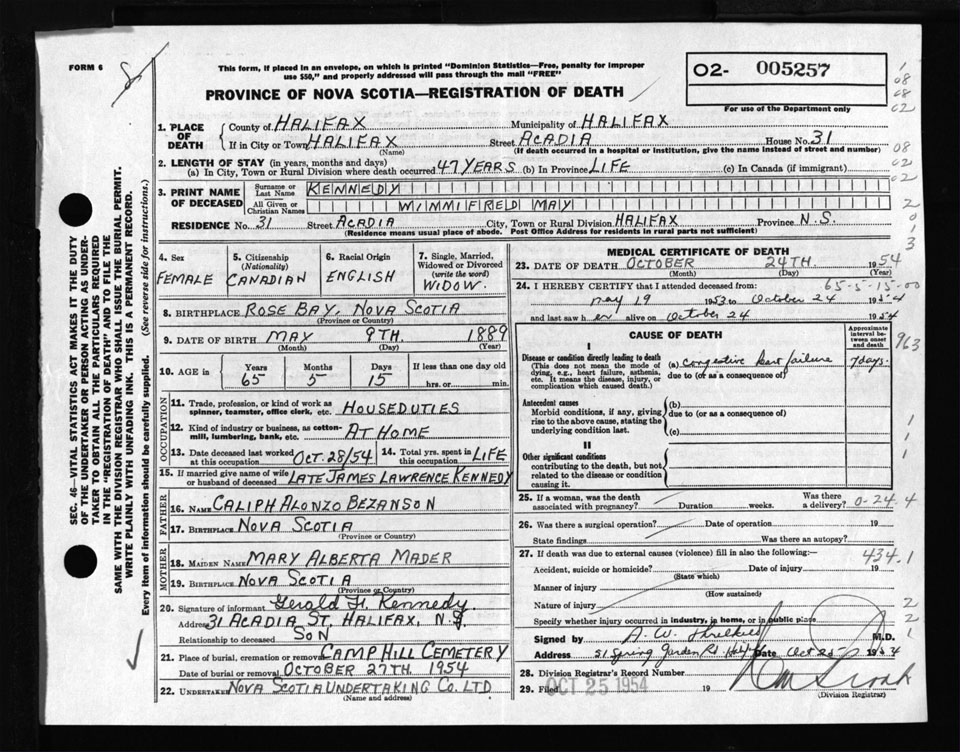 FORM 6
This form, if placed in an envelope, on which is printed "Dominion Statistics—Free, penalty for improper
use $50," and properly addressed will pass through the mail "FREE"
PROVINCE OF NOVA SCOTIA—REGISTRATION OF DEATH
02- 005257
For use of the Department only
1. PLACE OF DEATH { County of HALIFAX Municipality of HALIFAX
If in City or Town HALIFAX (Name) Street ACADIA House No. 31
(If death occurred in a hospital or institution, give the name instead of street and number)
2. LENGTH OF STAY (in years, months and days)
(a) In City, Town or Rural Division where death occurred 47 YEARS (b) In Province LIFE (c) In Canada (if immigrant)
3. PRINT NAME OF DECEASED { Surname or Last Name KENNEDY
All Given or Christian Names WIMMIFRED MAY
RESIDENCE No. 31 Street ACADIA City, Town or Rural Division HALIFAX Province N.S.
(Residence means usual place of abode. Post Office Address for residents in rural parts not sufficient)
4. Sex FEMALE
5. Citizenship (Nationality) CANADIAN
6. Racial Origin ENGLISH
7. Single, Married, Widowed or Divorced (write the word) WIDOW.
8. BIRTHPLACE ROSE BAY, NOVA SCOTIA
(Province or Country)
9. DATE OF BIRTH MAY 9TH. 1889
(Month) (Day) (Year)
10. AGE in { Years 65 Months 5 Days 15 If less than one day old hrs. or min.
OCCUPATION
11. Trade, profession, or kind of work as spinner, teamster, office clerk, etc. HOUSEDUTIES
12. Kind of industry or business, as cotton-mill, lumbering, bank, etc. AT HOME
13. Date deceased last worked at this occupation OCT. 28/54 14. Total yrs. spent in this occupation LIFE
15. If married give name of wife or husband of deceased LATE JAMES LAWRENCE KENNEDY
FATHER
16. NAME CALIPH ALONZO BEZANSON
17. BIRTHPLACE NOVA SCOTIA
(Province or Country)
MOTHER
18. MAIDEN NAME MARY ALBERTA MADER
19. BIRTHPLACE NOVA SCOTIA
(Province or Country)
20. Signature of informant Gerald H. Kennedy
Address 31 ACADIA ST, HALIFAX, N.S.
Relationship to deceased SON
21. Place of burial, cremation or removal CAMP HILL CEMETERY
Date of burial or removal OCTOBER 27TH. 1954
22. UNDERTAKER NOVA SCOTIA UNDERTAKING CO. LTD
(Name and address)
MEDICAL CERTIFICATE OF DEATH
23. DATE OF DEATH OCTOBER 24TH. 1954
(Month) (Day) (Year)
65-5-15-00
24. I HEREBY CERTIFY that I attended deceased from:
May 19 1953 to October 24 1954
and last saw her alive on October 24 1954
CAUSE OF DEATH
Approximate interval between onset and death
I
Disease or condition directly leading to death
(This does not mean the mode of dying, e.g., heart failure, asthenia, etc. It means the disease, injury, or complication which caused death.)
(a) Congestive heart failure 7 days.
due to (or as a consequence of)
Antecedent causes
Morbid conditions, if any, giving rise to the above cause, stating the underlying condition last.
(b)
due to (or as a consequence of)
(c)
II
Other significant conditions
contributing to the death, but not related to the disease or condition causing it.
25. If a woman, was the death associated with pregnancy? Duration weeks. Was there a delivery? 0-24.4
26. Was there a surgical operation? Date of operation 19
State findings Was there an autopsy?
27. If death was due to external causes (violence) fill in also the following:— 434.1
Accident, suicide or homicide? (State which) Date of injury 19
Manner of injury (How sustained)
Nature of injury
Specify whether injury occurred in industry, in home, or in public place
Signed by A. W. M.D.
Address 51 Spring Garden Rd Date Oct 25 1954
28. Division Registrar's Record Number
29. Filed OCT 25 1954 19
(Division Registrar)
SEC. 46—VITAL STATISTICS ACT MAKES IT THE DUTY
OF THE UNDERTAKER OR PERSON ACTING AS UNDER-
TAKER TO OBTAIN ALL THE PARTICULARS REQUIRED
IN THE "REGISTRATION OF DEATH" AND TO FILE THE
SAME WITH THE DIVISION REGISTRAR WHO SHALL ISSUE THE BURIAL PERMIT.
WRITE PLAINLY WITH UNFADING INK. THIS IS A PERMANENT RECORD.
Every item of information should be carefully supplied. (See reverse side for instructions.)
1
08
08
02
08
02
02
2
0
1
3
963
1
1
1
2
2
1